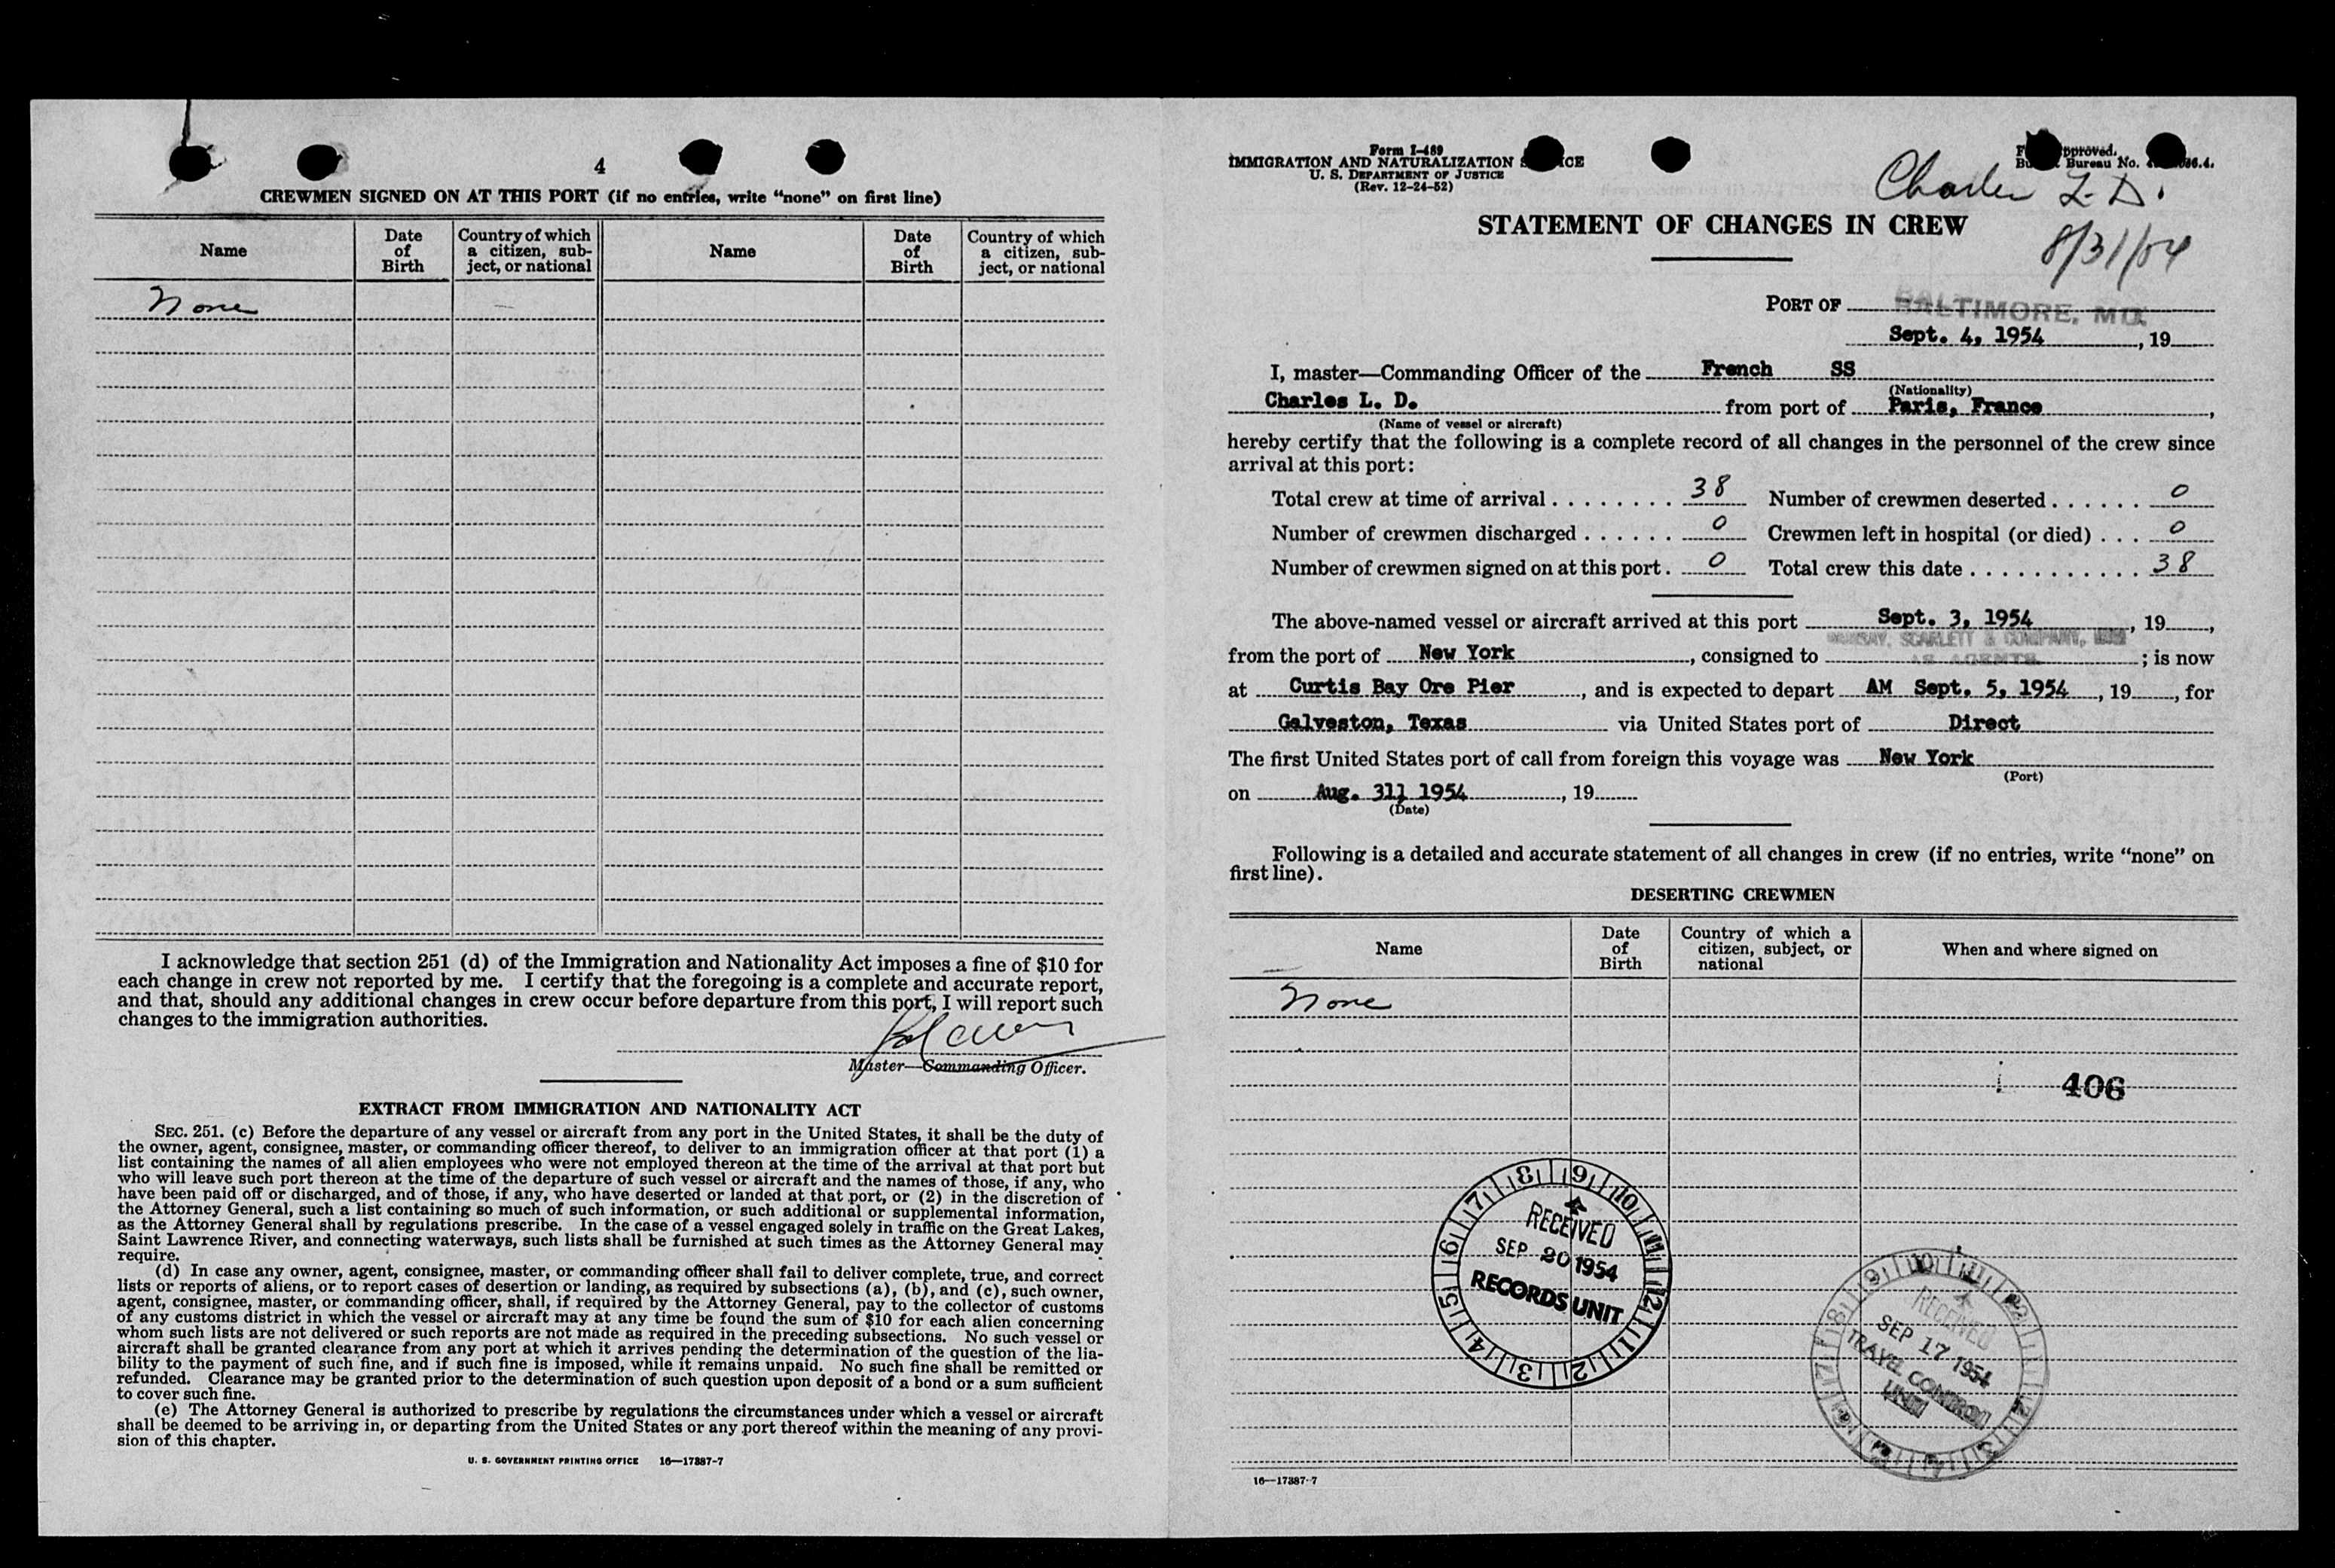 4
CREWMEN SIGNED ON AT THIS PORT (if no entries, write “none” on first line)
Name
Date of Birth
Country of which a citizen, sub-ject, or national
Name
Date of Birth
Country of which a citizen, sub-ject, or national
None
I acknowledge that section 251 (d) of the Immigration and Nationality Act imposes a fine of $10 for
each change in crew not reported by me. I certify that the foregoing is a complete and accurate report,
and that, should any additional changes in crew occur before departure from this port, I will report such
changes to the immigration authorities.
Master—Commanding Officer.
EXTRACT FROM IMMIGRATION AND NATIONALITY ACT
SEC. 251. (c) Before the departure of any vessel or aircraft from any port in the United States, it shall be the duty of
the owner, agent, consignee, master, or commanding officer thereof, to deliver to an immigration officer at that port (1) a
list containing the names of all alien employees who were not employed thereon at the time of the arrival at that port but
who will leave such port thereon at the time of the departure of such vessel or aircraft and the names of those, if any, who
have been paid off or discharged, and of those, if any, who have deserted or landed at that port, or (2) in the discretion of
the Attorney General, such a list containing so much of such information, or such additional or supplemental information,
as the Attorney General shall by regulations prescribe. In the case of a vessel engaged solely in traffic on the Great Lakes,
Saint Lawrence River, and connecting waterways, such lists shall be furnished at such times as the Attorney General may
require.
(d) In case any owner, agent, consignee, master, or commanding officer shall fail to deliver complete, true, and correct
lists or reports of aliens, or to report cases of desertion or landing, as required by subsections (a), (b), and (c), such owner,
agent, consignee, master, or commanding officer, shall, if required by the Attorney General, pay to the collector of customs
of any customs district in which the vessel or aircraft may at any time be found the sum of $10 for each alien concerning
whom such lists are not delivered or such reports are not made as required in the preceding subsections. No such vessel or
aircraft shall be granted clearance from any port at which it arrives pending the determination of the question of the lia-
bility to the payment of such fine, and if such fine is imposed, while it remains unpaid. No such fine shall be remitted or
refunded. Clearance may be granted prior to the determination of such question upon deposit of a bond or a sum sufficient
to cover such fine.
(e) The Attorney General is authorized to prescribe by regulations the circumstances under which a vessel or aircraft
shall be deemed to be arriving in, or departing from the United States or any port thereof within the meaning of any provi-
sion of this chapter.
U. S. GOVERNMENT PRINTING OFFICE 16—17387-7
Form I-489
IMMIGRATION AND NATURALIZATION
U. S. DEPARTMENT OF JUSTICE
(Rev. 12-24-52)
Bureau No.
Charles L. D.
8/31/54
STATEMENT OF CHANGES IN CREW
PORT OF BALTIMORE, MD.
Sept. 4, 1954, 19
I, master—Commanding Officer of the French SS
(Nationality)
Charles L. D. from port of Paris, France,
(Name of vessel or aircraft)
hereby certify that the following is a complete record of all changes in the personnel of the crew since
arrival at this port:
Total crew at time of arrival 38 Number of crewmen deserted 0
Number of crewmen discharged 0 Crewmen left in hospital (or died) 0
Number of crewmen signed on at this port 0 Total crew this date 38
The above-named vessel or aircraft arrived at this port Sept. 3, 1954, 19,
SCARLETT & COMPANY,
from the port of New York, consigned to AS AGENTS; is now
at Curtis Bay Ore Pier, and is expected to depart AM Sept. 5, 1954, 19, for
Galveston, Texas via United States port of Direct
The first United States port of call from foreign this voyage was New York
(Port)
on Aug. 31, 1954, 19
(Date)
Following is a detailed and accurate statement of all changes in crew (if no entries, write “none” on
first line).
DESERTING CREWMEN
Name
Date of Birth
Country of which a citizen, subject, or national
When and where signed on
None
406
RECEIVED
SEP 20 1954
RECORDS UNIT
RECEIVED
SEP 17 1954
TRAVEL CONTROL
UNIT
16—17387-7